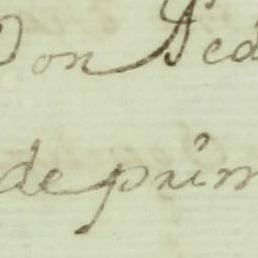 Don Ped
de prim